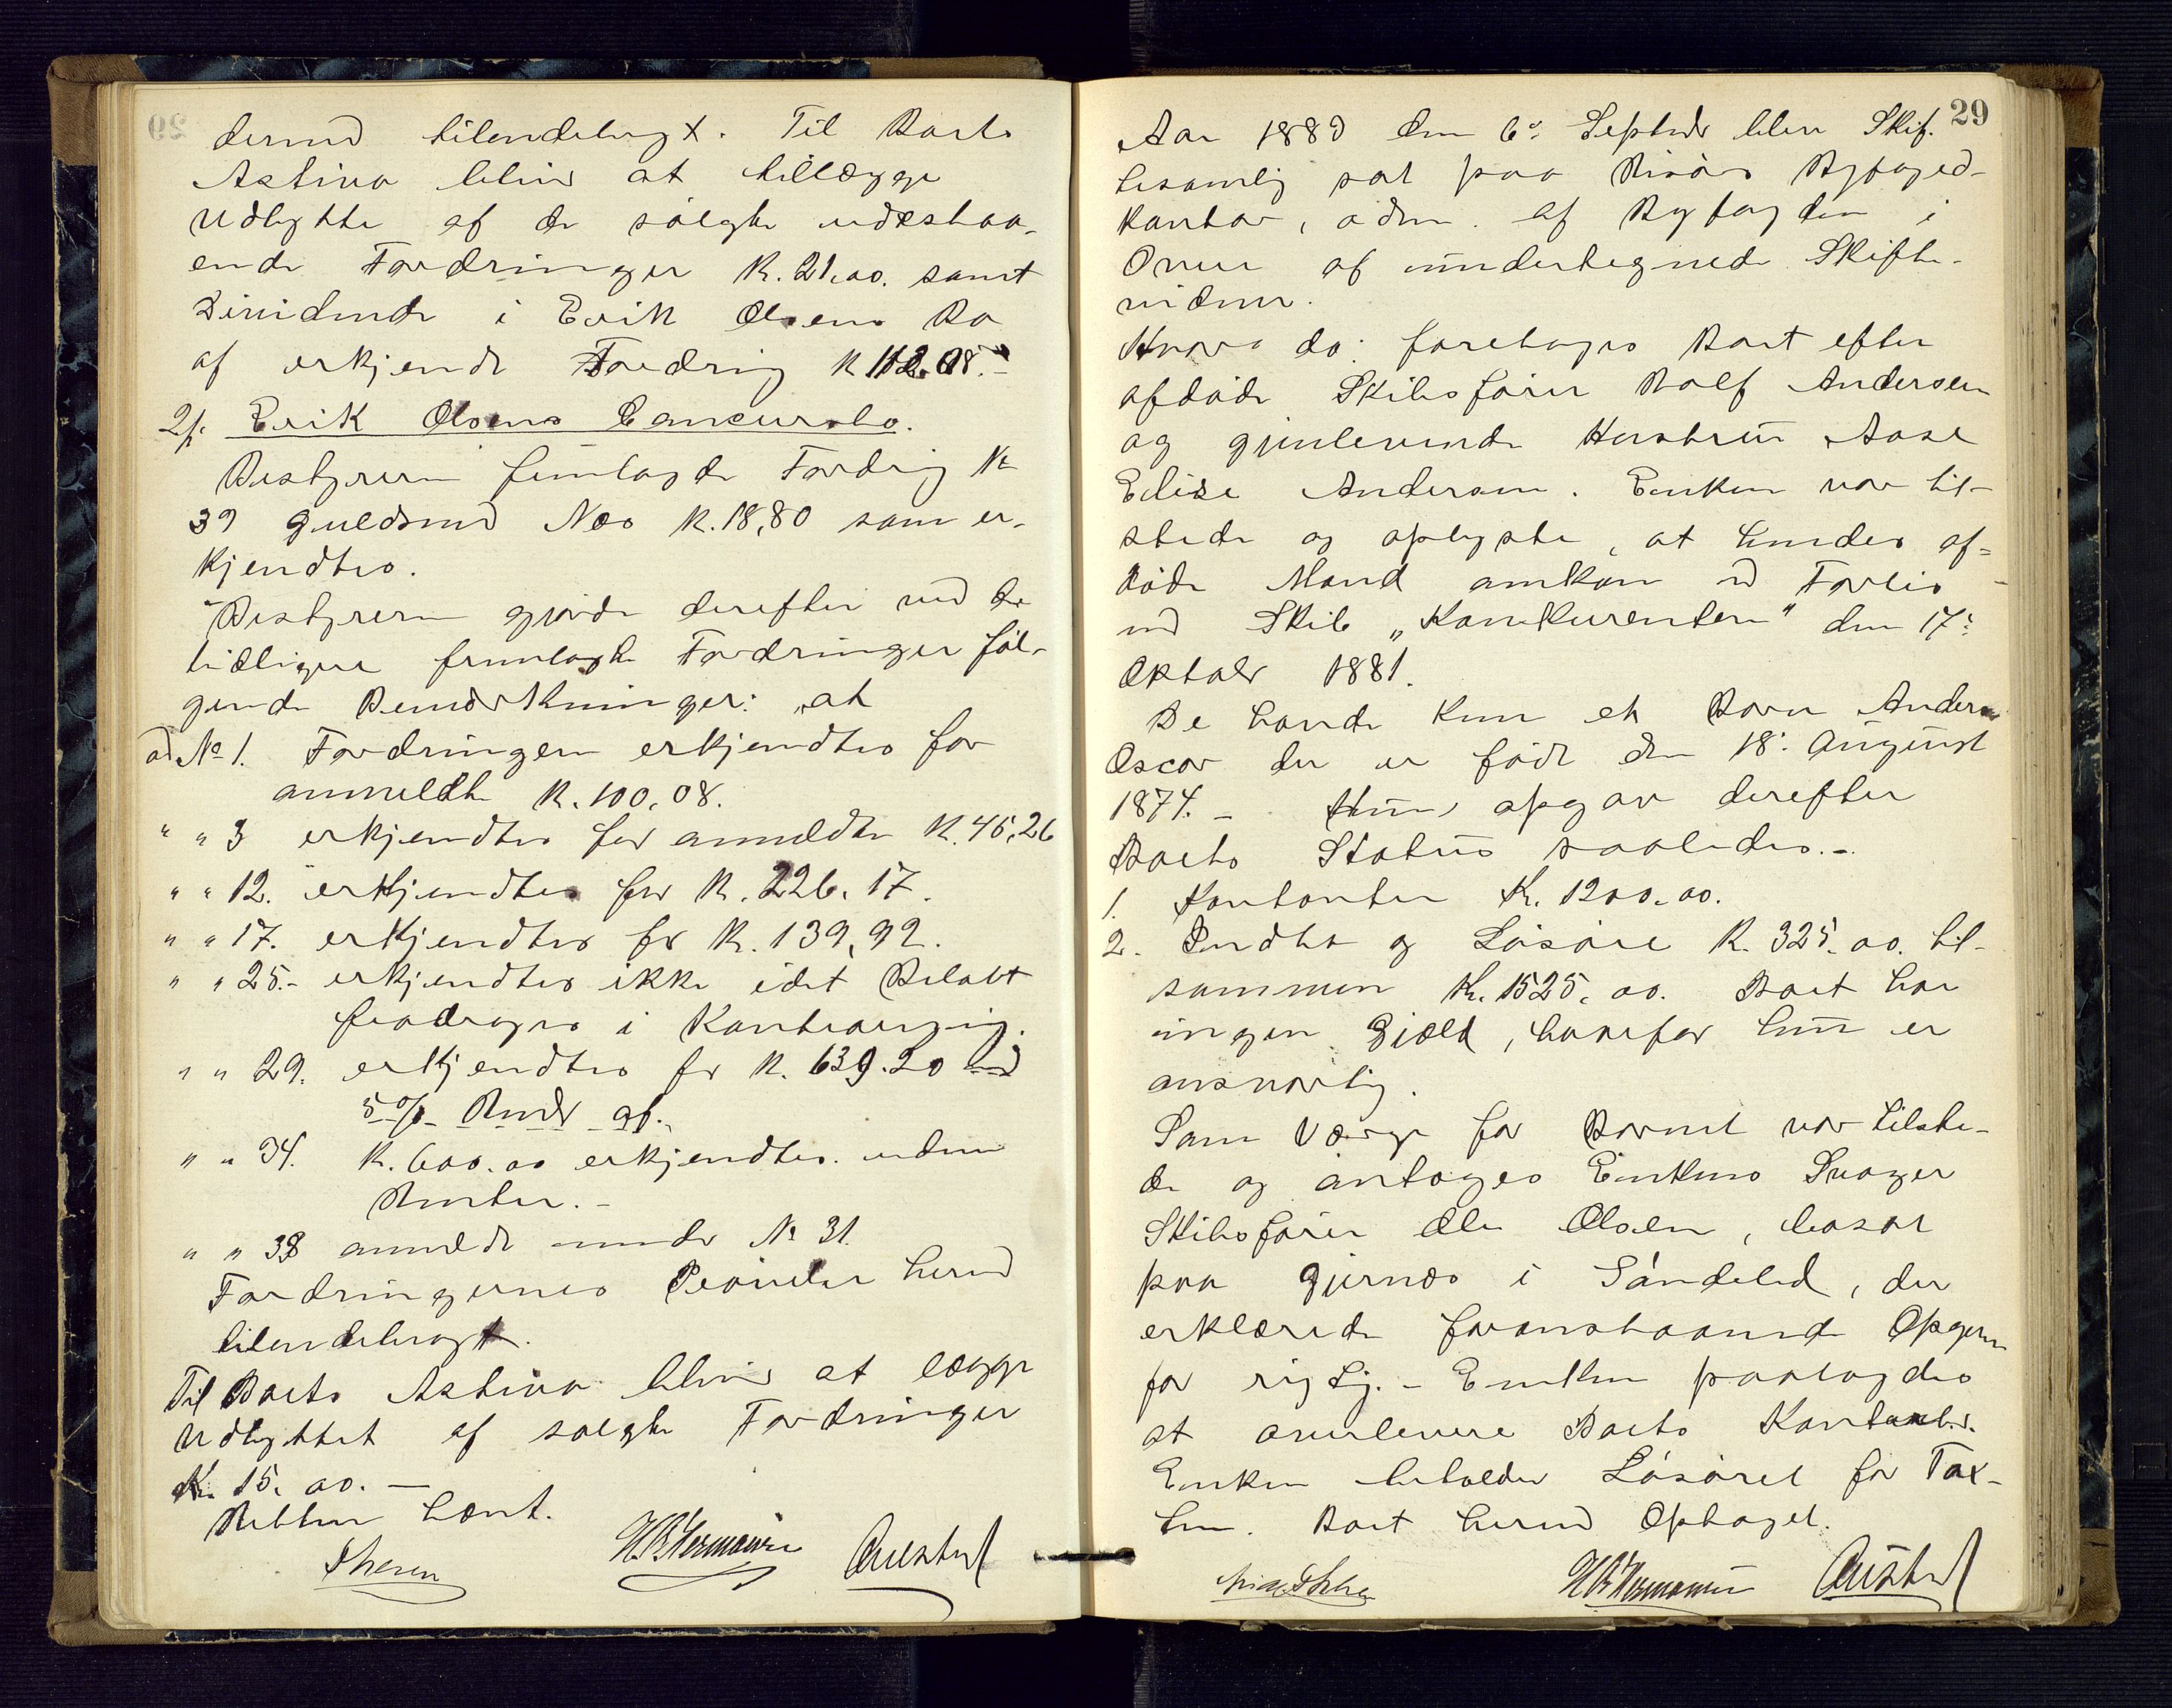 dermed tilendebragt. Til Boets
Aktiva bliver at tillægge
Udbytte af de solgte udestaa-
ende Fordringer K. 21.00. samt
Dividende i Erik Olsens Bo
af erkjendt Fordring K
2/. Erik Olsens Concursbo.
Bestyreren fremlagde Fordrig No
39 Guldsmed Næs K. 18,80 som er-
kjendtes.
Bestyreren gjorde derefter ved de
tidligere fremlagte Fordringer føl-
gende Bemærkninger: at
ad No 1. Fordringen erkjendtes for
anmeldte K. 100,08.
" " 3 erkjendtes for anmeldte K. 45,26
" " 12. erkjendtes for K. 226. 17.
" " 17. erkjendtes for K. 139,92.
" " 25.- erkjendtes ikke idet Beløbt
fradrages i Kontraregnig.
" " 29. erkjendtes for K. 639.20 med
5 % Rente af.
" " 34. K. 600.00 erkjendtes uden
Renter.-
" " 38 anmeldt under No 31.
Fordringernes Prøvelse hermed
tilendebragt.
Til Boets Aktiva bliver at lægge
Udbyttet af solgte Fordringer
Kr. 15. 00. —
Retten hævt.
H. B. Hermansen
29
Aar 1889 den 6te Septembr blev Skif-
tesamlig sat paa Risørs Byfoged-
kontor, adm. af Byfogden i
Overv af undertegnede Skifte-
vidner.
Hvor da: foretoges Boet efter
afdøde Skibsfører Rolf Andersen
og gjenlevende Hustru Aase
Elise Andersen. Enken var til-
stede og oplyste, at hendes af-
døde Mand omkom ved Forlis
med Skib „Konkurenten" den 17:
Oktober 1881.
De havde kun et Barn Anders
Oscar der er født den 18: August
1874. - Hun opgav derefter
Boets Status saaledes.-
1. Kontanter Kr. 1200.00.
2. Indbo og Løsøre K. 325.00. til-
sammen Kr. 1525.00. Boet har
ingen Gjæld, hvorfor hun er
ansvarlig.
Som Værge for Barnet var tilste-
de og antoges Enkens Svoger
Skibsfører Ole Olsen, bosat
paa Gjernæs i Søndeled, der
erklærede foranstaaende Opgave
for rigtig. - Enken paalagdes
at overlevere Boets Kontanter.
Enken beholder Løsøret for Tax-
ten. Boet hermed Optaget.
H B Hermansen